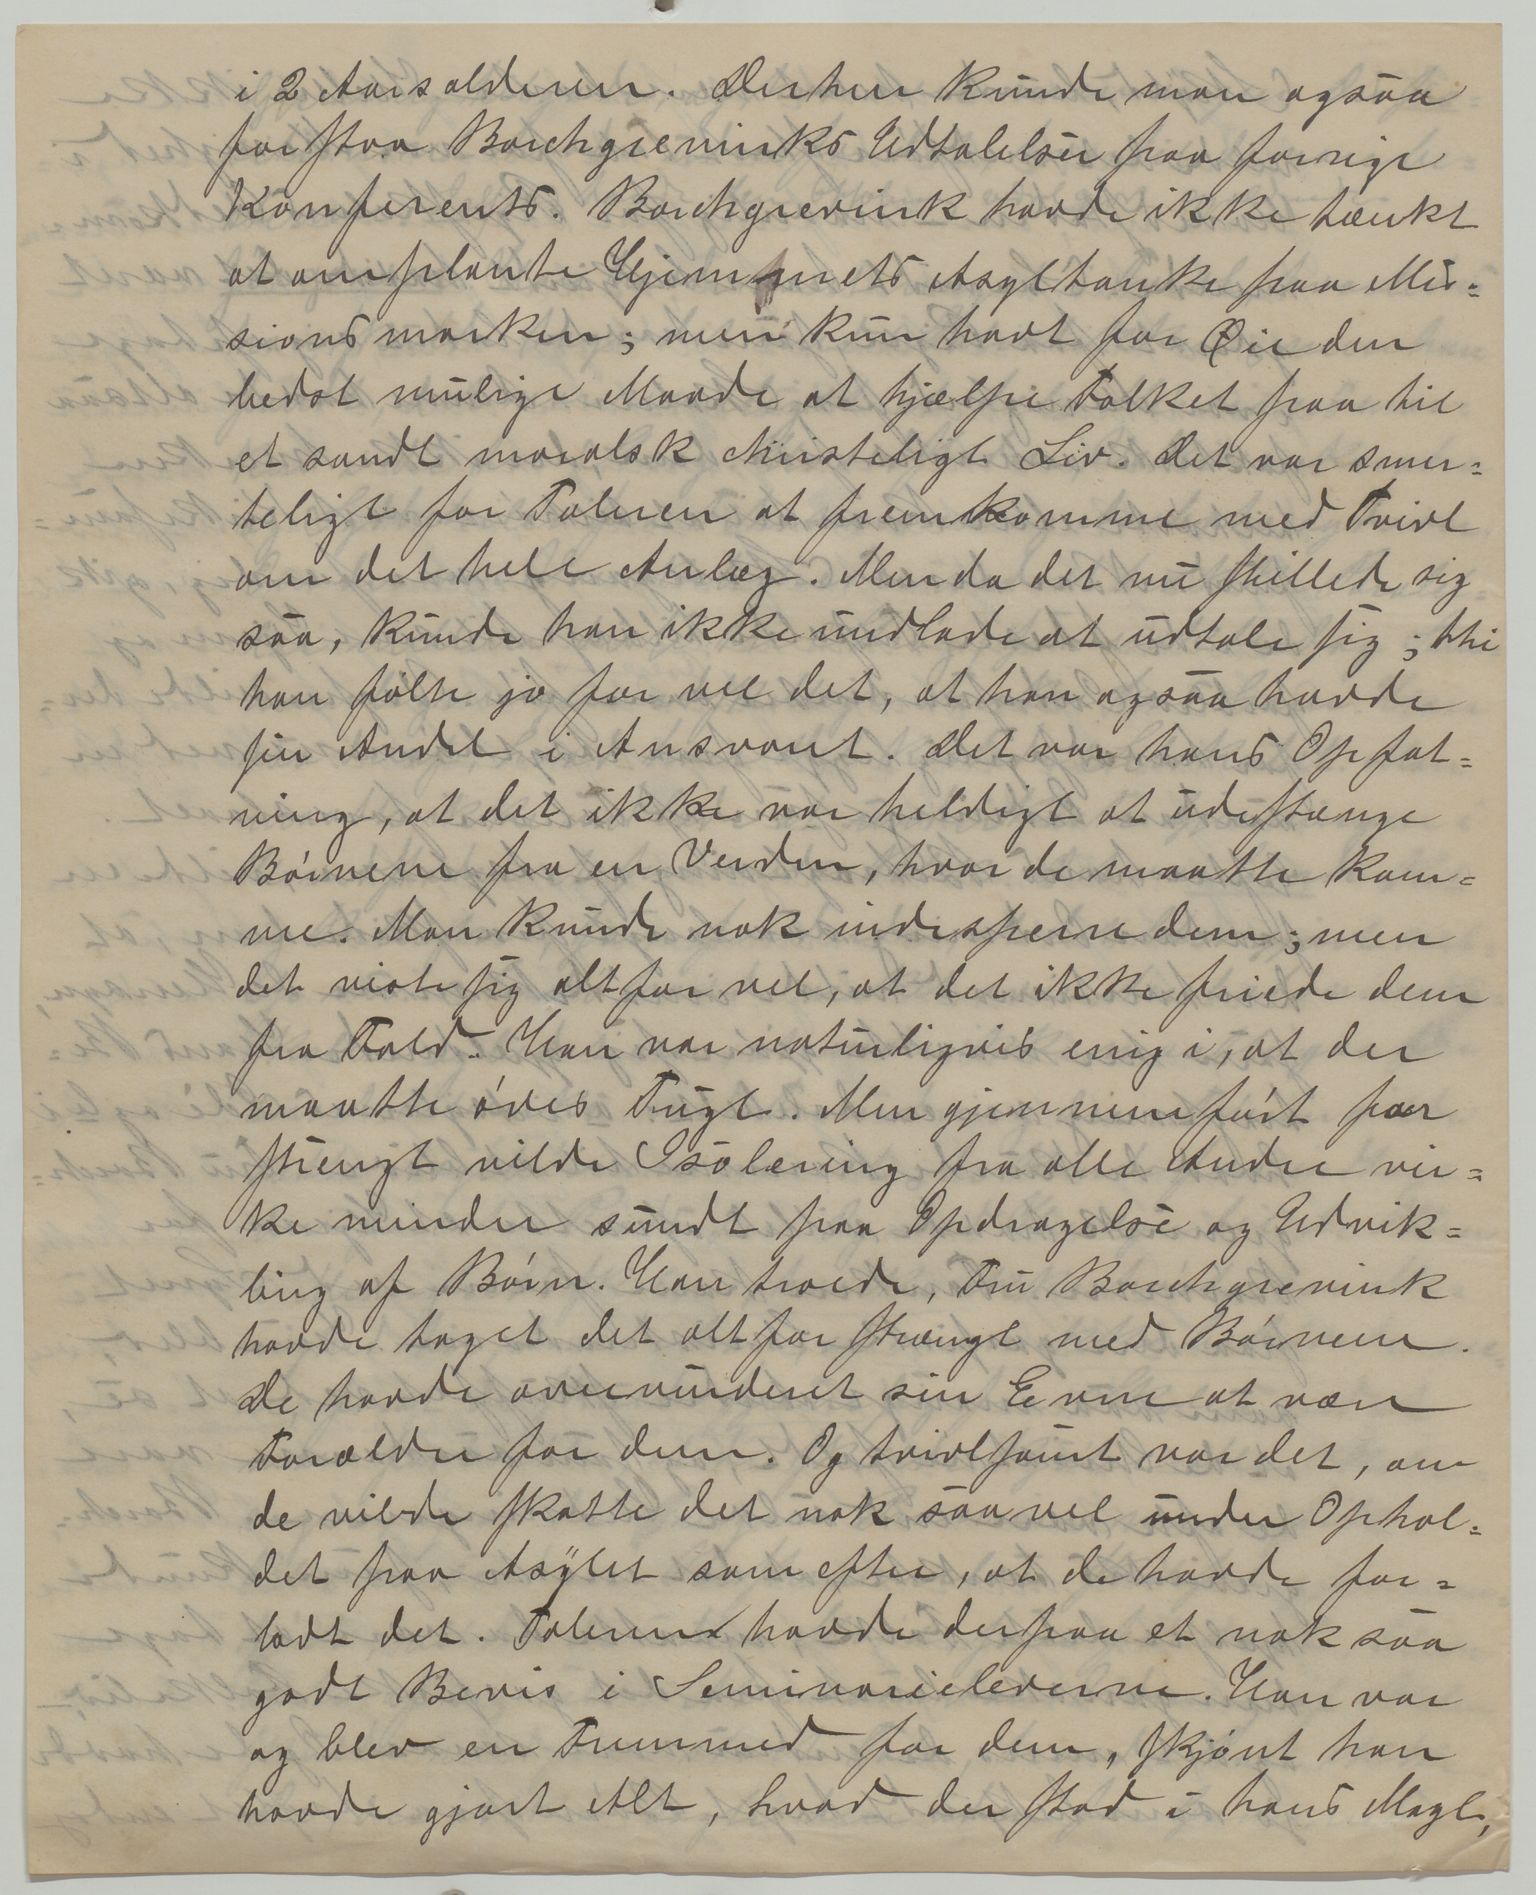 i 2 Aarsalderen. Derhen kunde man ogsaa
forstaa Borchgrevinks Udtalelser paa forrige
Konferents. Borchgrevink havde ikke tænkt
at omplante Hjemmets Asyltanke paa Mis=
sionsmarken; men kun havt for Øie den
bedst mulige Maade at hjælpe Folket paa til
et sandt moralsk christeligt Liv. Det var smer=
teligt for Taleren at fremkomme med Tvivl
om det hele Anlæg. Men da det nu stillede sig
saa, kunde han ikke undlade at udtale sig; thi
han følte jo for vel det, at han ogsaa havde
sin Andel i Ansvaret. Det var hans Opfat=
ning, at det ikke var heldigt at udestænge
Børnene fra en Verden, hvor de maatte kom=
me. Man kunde nok indesperre dem; men
det viste sig altfor vel, at det ikke friede dem
fra Fald. Han var naturligvis enig i, at der
maatte øves Tugt. Men gjennemført paa
strengt vilde Isolering fra alle Andre vir=
ke mindre sundt paa Opdragelse og Udvik=
ling af Børn. Han troede, Fru Borchgrevink
havde taget det altfor strængt med Børnene.
De havde overvurderet sin Evne at være
Forældre for dem. Og tvivlsomt var det, om
de vilde skatte det nok saavel under Ophol=
det paa Asylet som efter, at de havde for=
ladt det. Taleren havde derpaa et nok saa
godt Bevis i Seminarieleverne. Han var
og blev en Fremmed for dem, skjønt han
havde gjort Alt, hvad der stod i hans Magt,